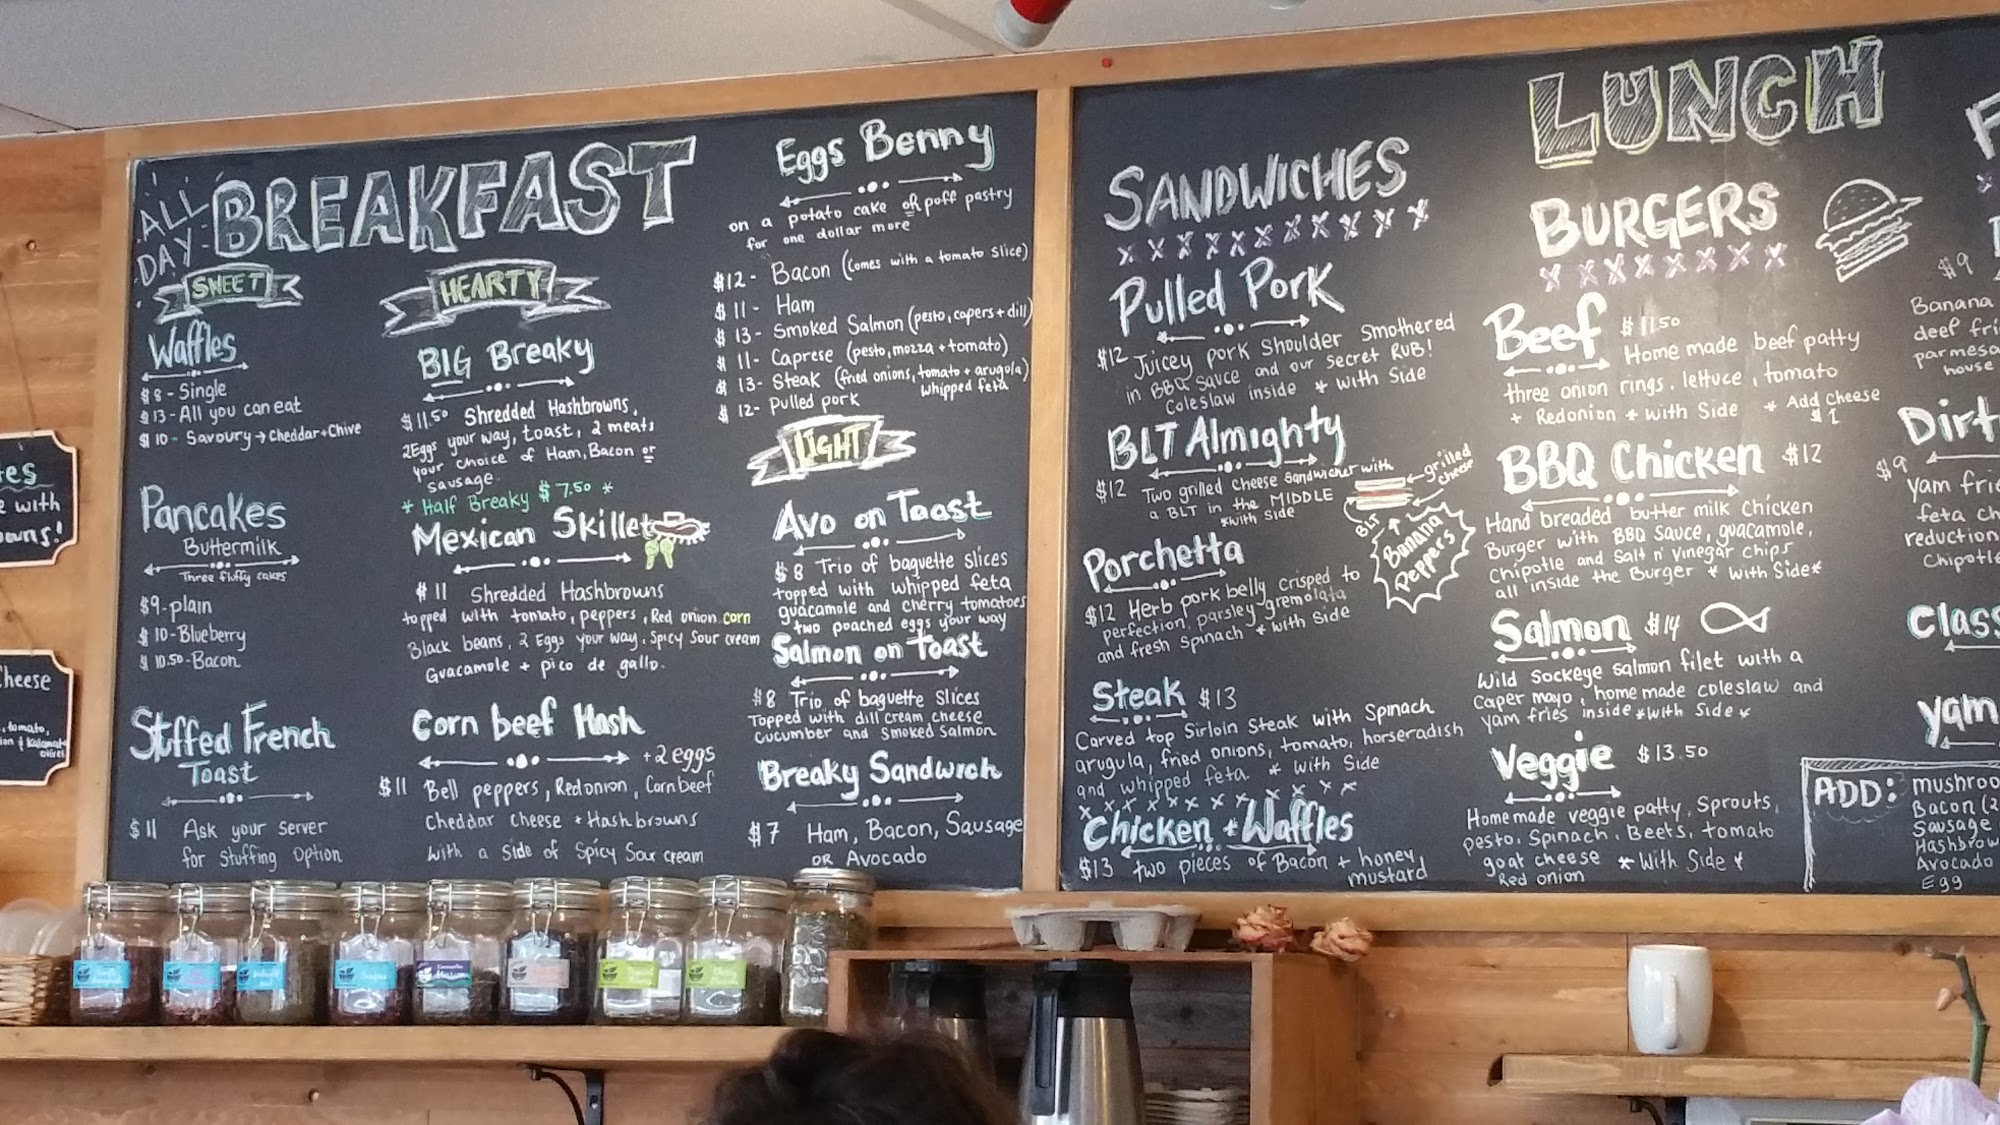 ALL
DAY
BREAKFAST
SWEET
Waffles
$8 - Single
$13 - All you can eat
$10 - Savoury → Cheddar + Chive
Pancakes
Buttermilk
Three fluffy cakes
$9 - plain
$10 - Blueberry
$10.50 - Bacon
Stuffed French
Toast
$11 Ask your server
for Stuffing Option
HEARTY
BIG Breaky
$11.50 Shredded Hashbrowns,
2Eggs your way, toast, 2 meats
your choice of Ham, Bacon or
sausage.
* Half Breaky $7.50 *
Mexican Skillet
$11 Shredded Hashbrowns
topped with tomato, peppers, Red onion, corn
Black beans, 2 Eggs your way, Spicy Sour cream
Guacamole + pico de gallo.
Corn beef Hash
+2 eggs
$11 Bell peppers, Red onion, Corn beef
Cheddar cheese + Hashbrowns
with a side of Spicy Sour cream
Eggs Benny
on a potato cake OR poff pastry
for one dollar more
$12 - Bacon (comes with a tomato slice)
$11 - Ham
$13 - Smoked Salmon (pesto, capers + dill)
$11 - Caprese (pesto, mozza + tomato)
$13 - Steak (fried onions, tomato + arugola)
whipped feta
$12 - Pulled pork
LIGHT
Avo on Toast
$8 Trio of baguette slices
topped with whipped feta
guacamole and cherry tomatoes
two poached eggs your way
Salmon on toast
$8 Trio of baguette Slices
Topped with dill cream cheese
cucumber and smoked salmon
Breaky Sandwich
$7 Ham, Bacon, Sausage
OR Avocado
LUNCH
SANDWICHES
Pulled Pork
$12 Juicey pork Shoulder Smothered
in BBQ Sauce and our secret RUB!
Coleslaw inside * with Side
BLT Almighty
$12 Two grilled cheese Sandwiches with
a BLT in the MIDDLE
*with Side
grilled
cheese
BLT
Banana
Peppers
Porchetta
$12 Herb pork belly crisped to
perfection, parsley-gremolata
and fresh Spinach * with Side
Steak $13
Carved top Sirloin Steak with Spinach
arugula, fried onions, tomato, horseradish
and whipped feta * with Side
Chicken + Waffles
$13 two pieces of Bacon + honey
mustard
BURGERS
Beef $11.50
Home made beef patty
three onion rings, lettuce, tomato
+ Redonion * with Side * Add cheese
$1
BBQ Chicken $12
Hand breaded butter milk Chicken
Burger with BBQ Sauce, guacamole,
Chipotle and Salt n' Vinegar chips
all inside the Burger * with Side*
Salmon $14
Wild Sockeye Salmon filet with a
Caper mayo, home made coleslaw and
yam fries inside *with Side*
Veggie $13.50
Homemade veggie patty, Sprouts,
pesto, Spinach, Beets, tomato
goat cheese * With Side *
Red onion
F
$9
Banana
deep fri
parmesa
house
Dirt
$9
yam frie
feta ch
reduction
Chipotle
Class
yam
ADD: mushroo
Bacon (2
Sausage
Hashbrow
Avocado
Egg
es
e with
owns!
Cheese
, tomato,
ion & Kalamata
olives